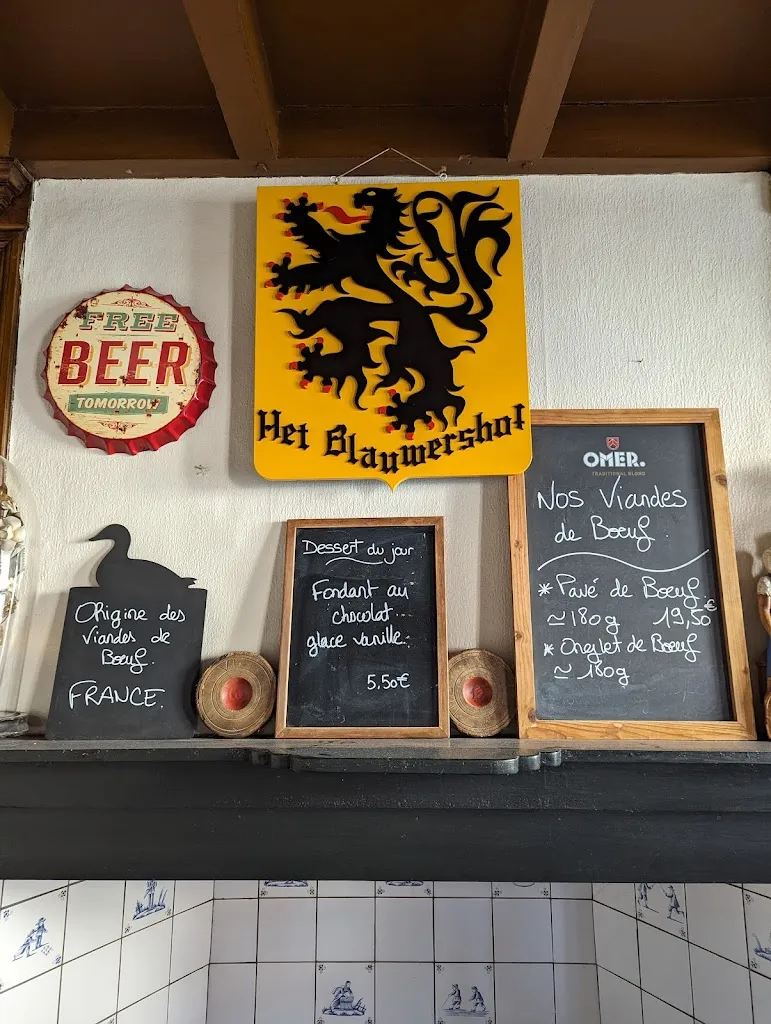 FREE
BEER
TOMORROW
Het Blauwershof
OMER.
TRADITIONAL BLOND
Nos Viandes
de Boeuf.
* Pavé de Boeuf.
≃ 180g 19,50€
* Onglet de Boeuf
≃ 180g
Dessert du jour
Fondant au
chocolat.
glace vanille.
5,50€
Origine des
Viandes de
Boeuf.
FRANCE.